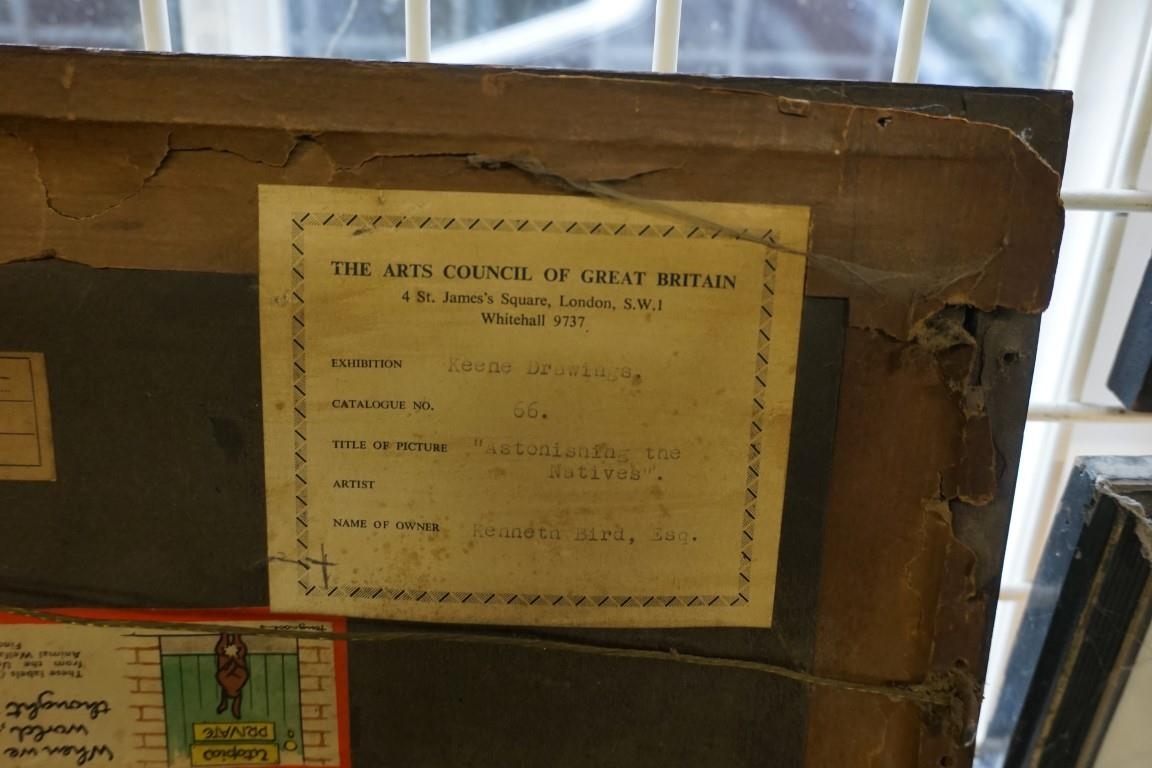 THE ARTS COUNCIL OF GREAT BRITAIN
4 St. James's Square, London, S.W.1
Whitehall 9737
EXHIBITION Keene Drawings.
CATALOGUE NO. 66.
TITLE OF PICTURE "Astonishing the
Natives".
ARTIST
NAME OF OWNER Kenneth Bird, Esq.
When we
thought
world,
These labels
from the
Animal
PRIVATE